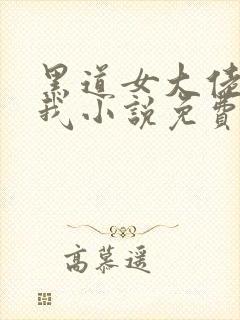 黑道女大佬
我小説免費
高慕遥